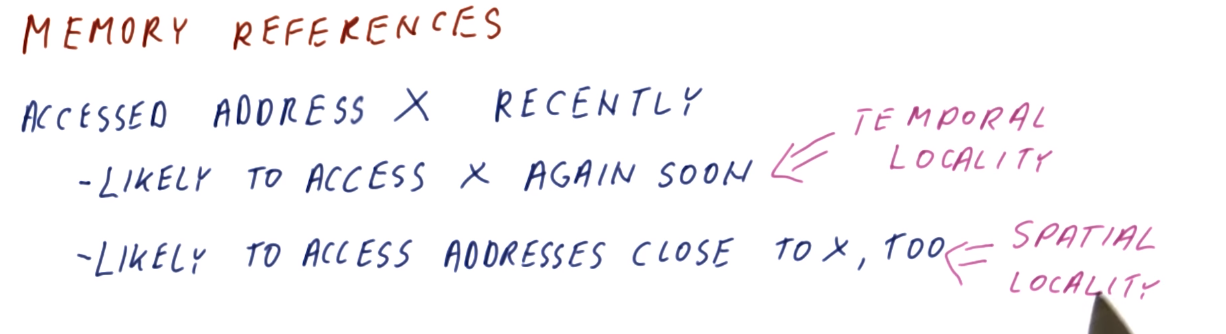 MEMORY REFERENCES
ACCESSED ADDRESS X RECENTLY
-LIKELY TO ACCESS X AGAIN SOON
TEMPORAL
LOCALITY
-LIKELY TO ACCESS ADDRESSES CLOSE TO X, TOO
SPATIAL
LOCALITY